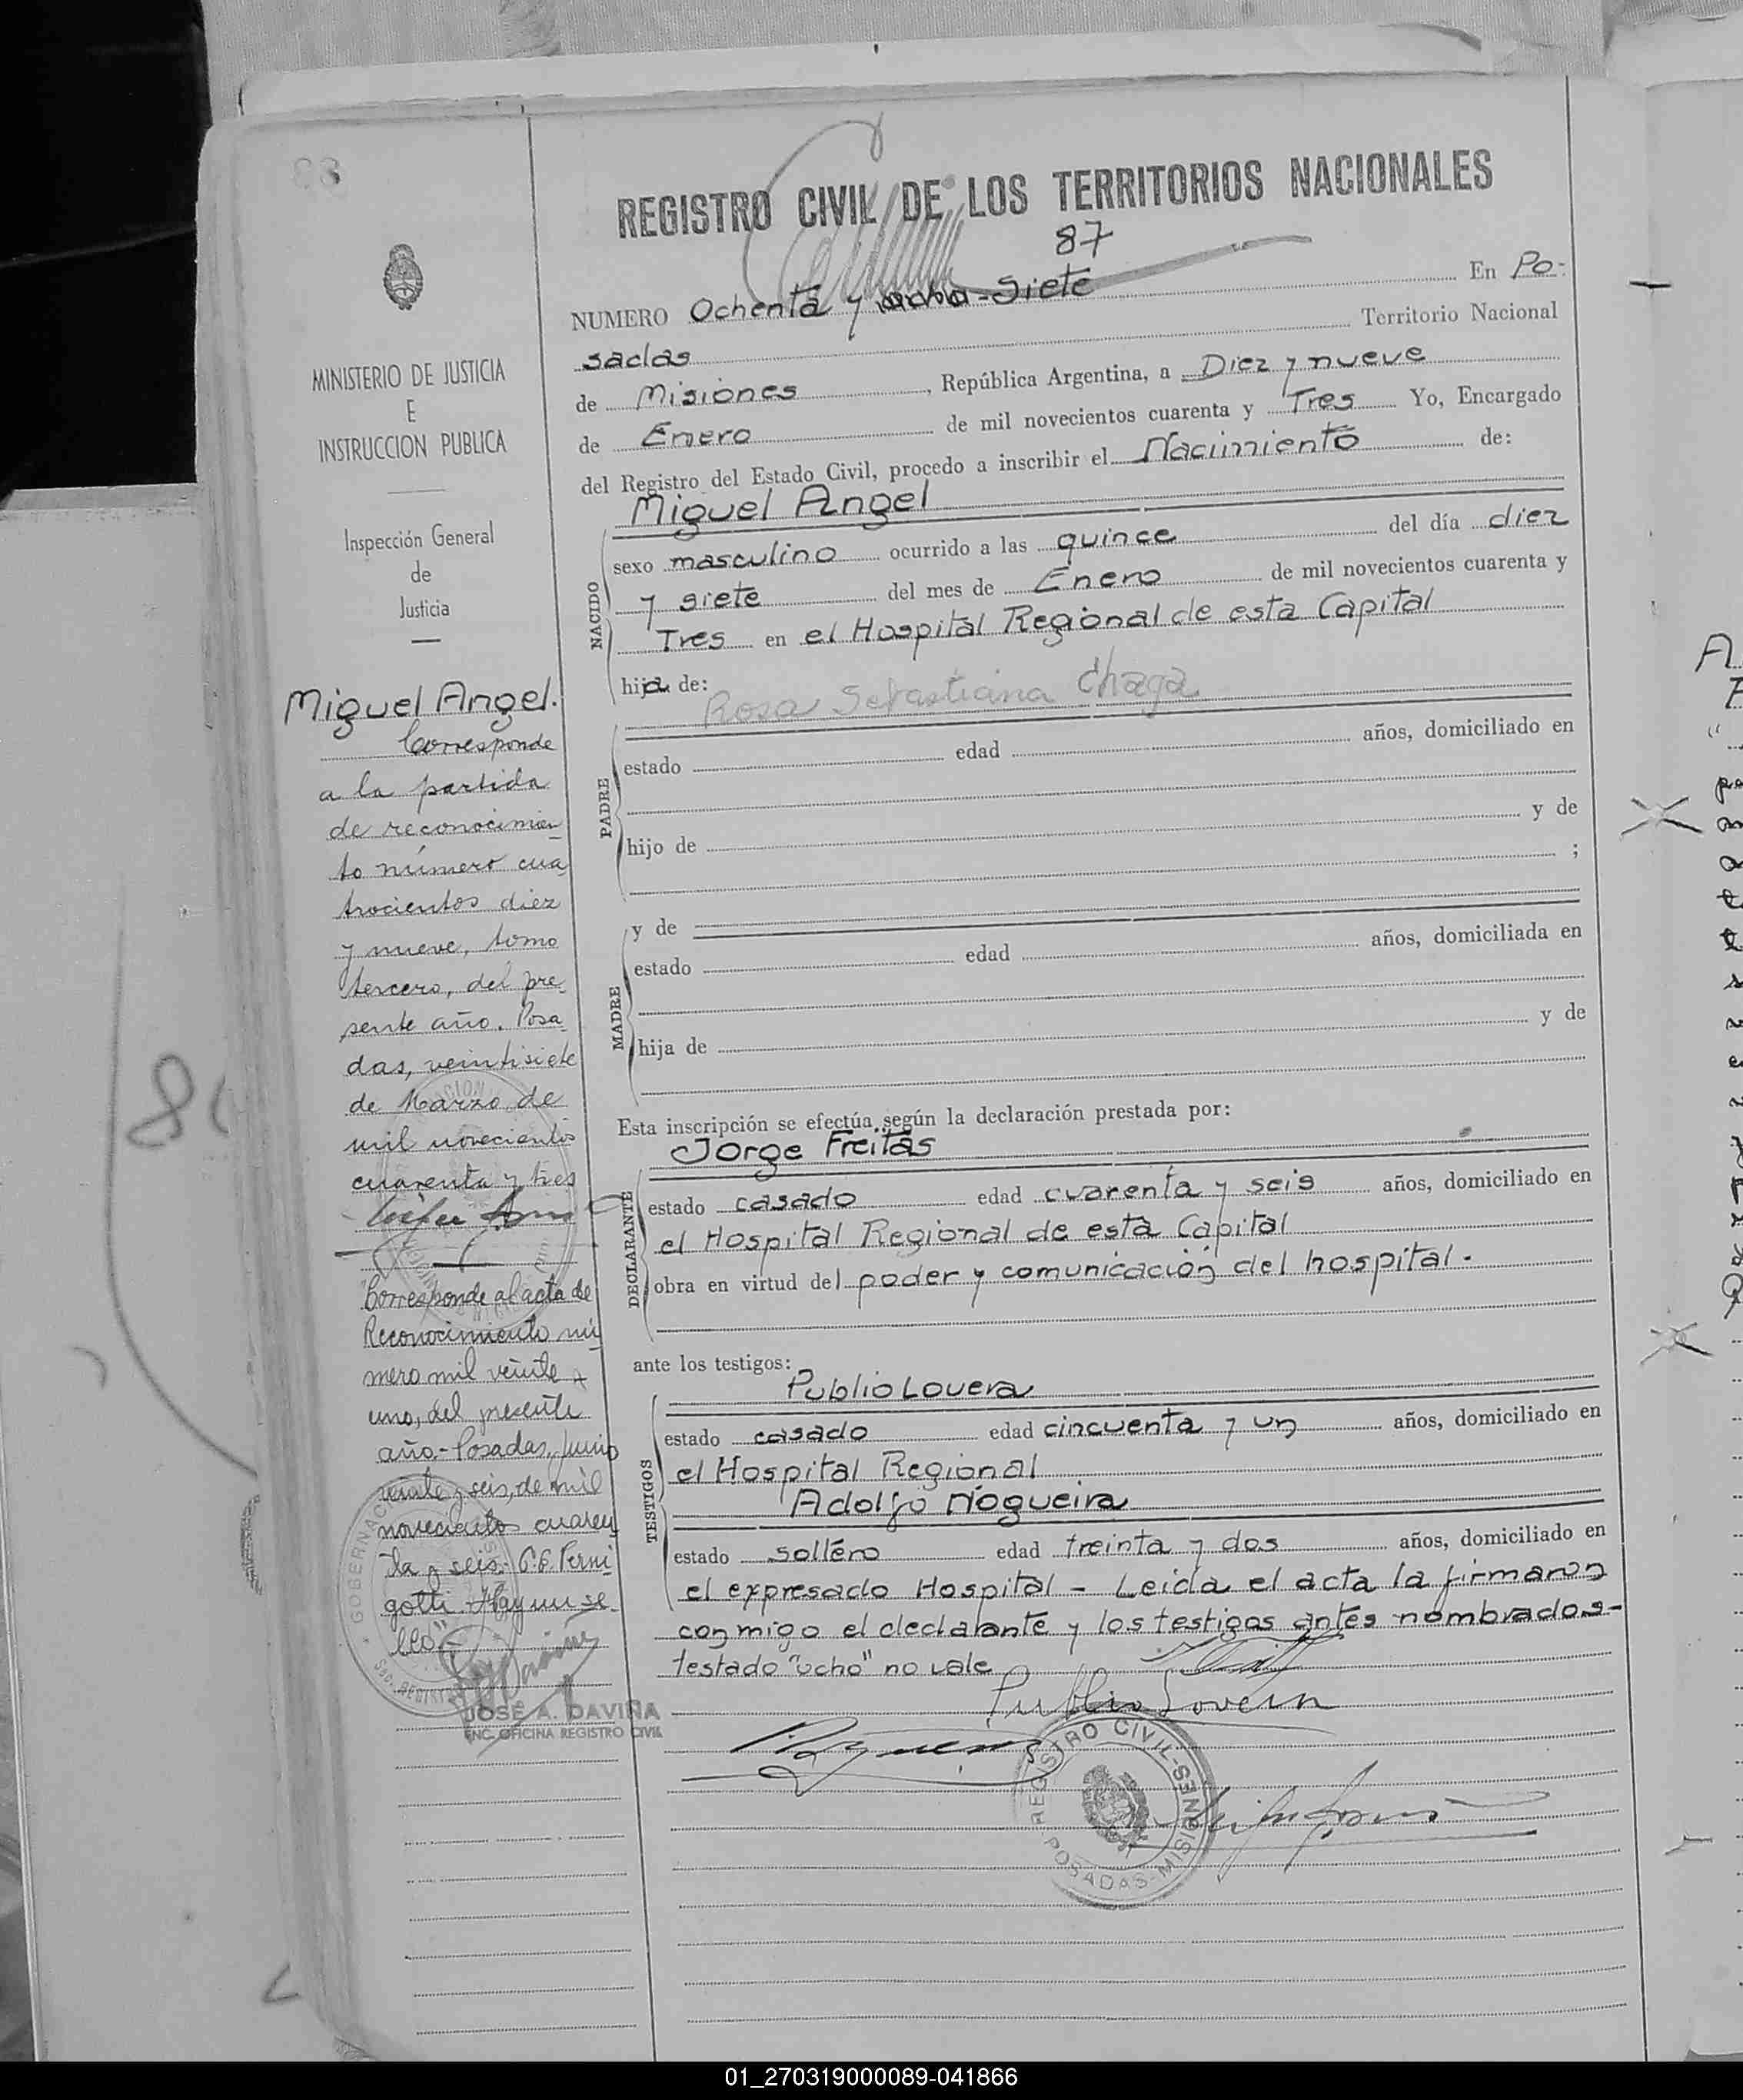 88
REGISTRO CIVIL DE LOS TERRITORIOS NACIONALES
87
NUMERO Ochenta y ocho - Siete En Po-
sadas Territorio Nacional
de Misiones, República Argentina, a Diez y nueve
de Enero de mil novecientos cuarenta y Tres Yo, Encargado
del Registro del Estado Civil, procedo a inscribir el Nacimiento de:
Miguel Angel
sexo masculino ocurrido a las quince del día diez
y siete del mes de Enero de mil novecientos cuarenta y
Tres en el Hospital Regional de esta Capital
hijo de:
Rosa Sebastiana Chaga
NACIDO
estado edad años, domiciliado en
hijo de y de
;
PADRE
y de
estado edad años, domiciliada en
hija de y de
MADRE
Esta inscripción se efectúa según la declaración prestada por:
Jorge Freitas
estado casado edad cuarenta y seis años, domiciliado en
el Hospital Regional de esta Capital
obra en virtud del poder y comunicación del hospital.-
DECLARANTE
ante los testigos:
Publio Lovera
estado casado edad cincuenta y un años, domiciliado en
el Hospital Regional
Adolfo Nogueira
estado soltero edad treinta y dos años, domiciliado en
el expresado Hospital - Leída el acta la firmaron
TESTIGOS
conmigo el declarante y los testigos antes nombrados-
testado "ocho" no vale
Publio Lovera
REGISTRO CIVIL
POSADAS-MISIONES
MINISTERIO DE JUSTICIA
E
INSTRUCCION PUBLICA
Inspección General
de
Justicia
Miguel Angel.
Corresponde
a la partida
de reconocimien
to número cua
trocientos diez
y nueve, tomo
tercero, del pre
sente año. Posa
das, veintisiete
de Marzo de
mil novecientos
cuarenta y tres
Corresponde al acta de
Reconocimiento nú
mero mil veinte y
uno, del presente
año.- Posadas, Junio
veinte y seis, de mil
novecientos cuaren
ta y seis.- C.E. Perni
gotti. Hay un se
llo"-
JOSÉ A. DAVIÑA
ENC. OFICINA REGISTRO CIVIL
01_270319000089-041866